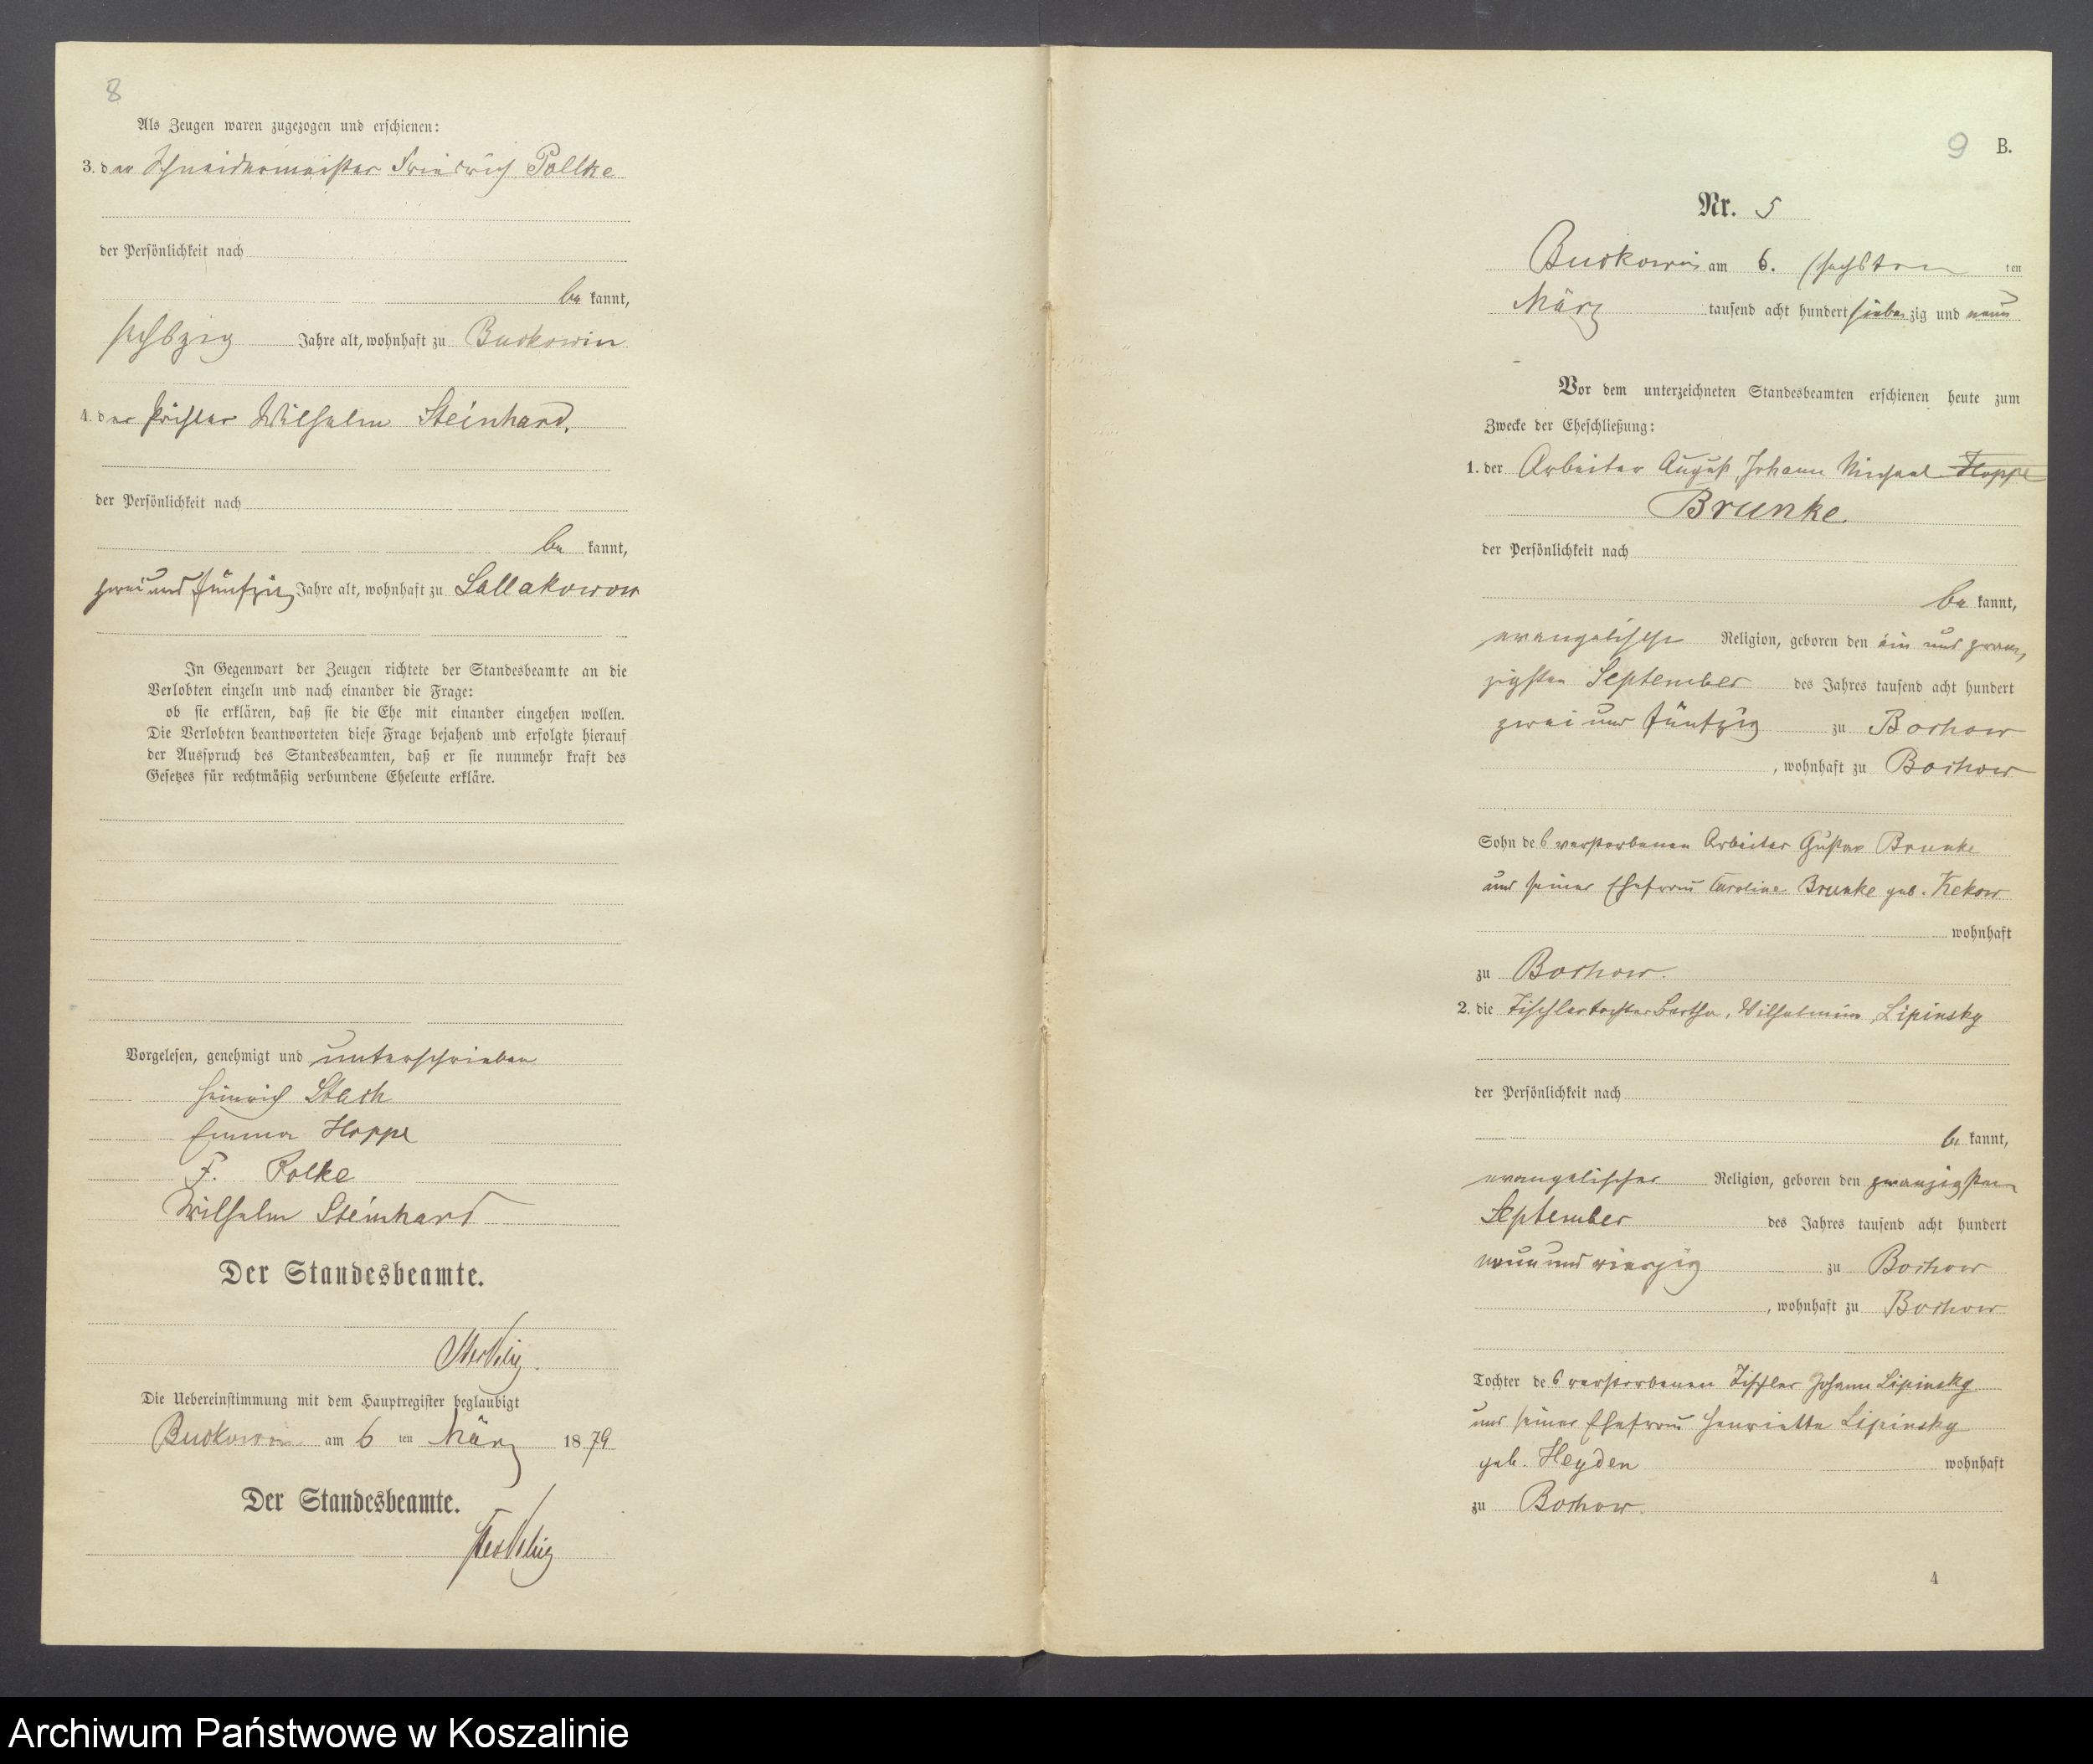 8
Als Zeugen waren zugezogen und erschienen:
3. der Schneidermeister Friedrich Pollke
der Persönlichkeit nach
be kannt,
sechszig Jahre alt, wohnhaft zu Buckowin
4. der Wilhelm Steinhard.
der Persönlichkeit nach
be kannt,
zwei und fünfzig Jahre alt, wohnhaft zu
In Gegenwart der Zeugen richtete der Standesbeamte an die
Verlobten einzeln und nach einander die Frage:
ob sie erklären, daß sie die Ehe mit einander eingehen wollen.
Die Verlobten beantworteten diese Frage bejahend und erfolgte hierauf
der Ausspruch des Standesbeamten, daß er sie nunmehr kraft des
Gesetzes für rechtmäßig verbundene Eheleute erkläre.
Vorgelesen, genehmigt und unterschrieben
Heinrich
Emma Hoppe
F. Polke
Wilhelm Steinhard
Der Standesbeamte.
Die Uebereinstimmung mit dem Hauptregister beglaubigt
Buckowin am 6 ten März 1879
Der Standesbeamte.
9 B.
Nr. 5
Buckowin am 6. sechsten ten
März tausend acht hundert sieben zig und neun
Vor dem unterzeichneten Standesbeamten erschienen heute zum
Zwecke der Eheschließung:
1. der Arbeiter August Johann Michael Hoppe
Brunke.
der Persönlichkeit nach
be kannt,
evangelischer Religion, geboren den ein und zwan
zigsten September des Jahres tausend acht hundert
zwei und fünfzig zu Bochow
, wohnhaft zu Bochow
Sohn des verstorbenen Arbeiter Gustav Brunke
und seiner Ehefrau Caroline Brunke geb. Kekow
wohnhaft
zu Bochow.
2. die Tischlertochter Bertha, Wilhelmine Lipinsky
der Persönlichkeit nach
be kannt,
evangelischer Religion, geboren den zwanzigsten
September des Jahres tausend acht hundert
neun und vierzig zu Bochow
, wohnhaft zu Bochow
Tochter des verstorbenen Tischler Johann Lipinsky
und seiner Ehefrau Henriette Lipinsky
geb. Heyden wohnhaft
zu Bochow.
4
Archiwum Państwowe w Koszalinie